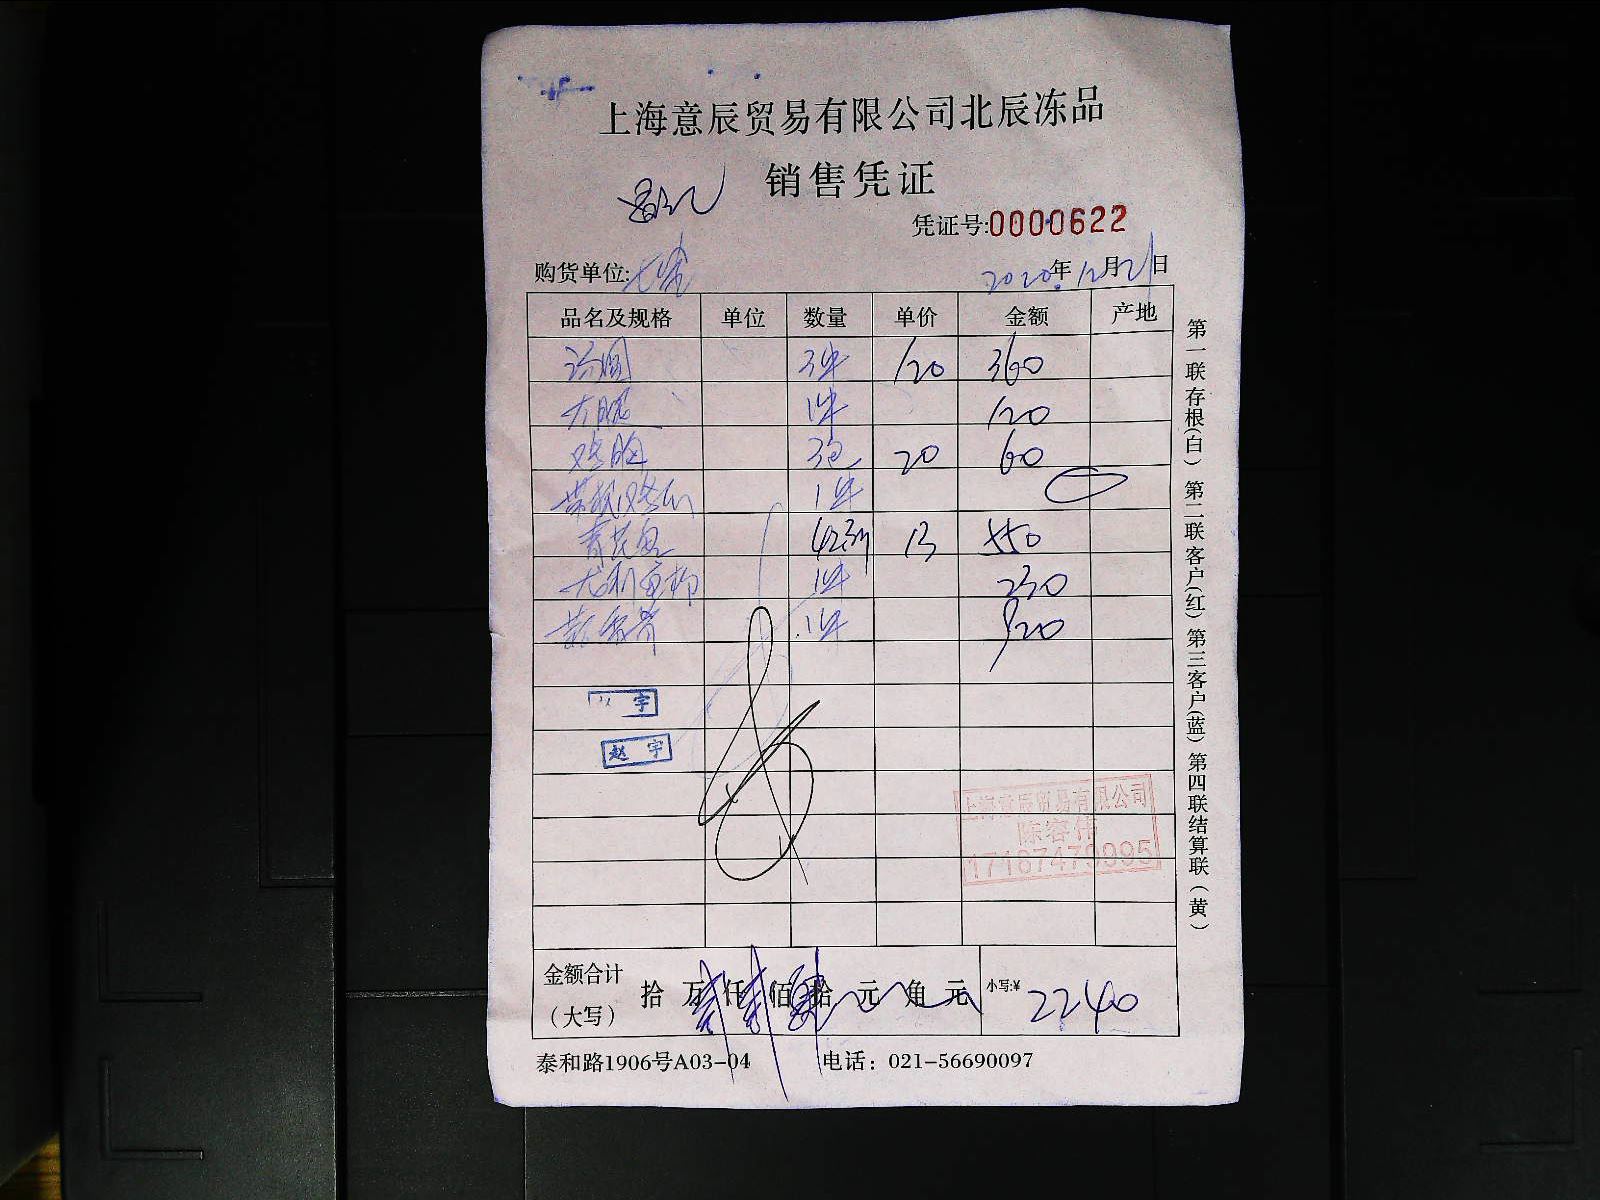 上海意辰贸易有限公司北辰冻品
销售凭证
凭证号:0000622
购货单位: 2020年12月21日
品名及规格 单位 数量 单价 金额 产地
汤圆 3件 120 360
大腿 1件 120
鸡胸 3包 20 60
1件
13 550
1件 230
1件 920
赵宇
上海意辰贸易有限公司
陈容伟
17187479995
金额合计
(大写) 拾 万 仟 佰 拾 元 角 元 小写:¥ 2240
泰和路1906号A03-04 电话: 021-56690097
第一联存根(白) 第二联客户(红) 第三客户(蓝) 第四联结算联(黄)